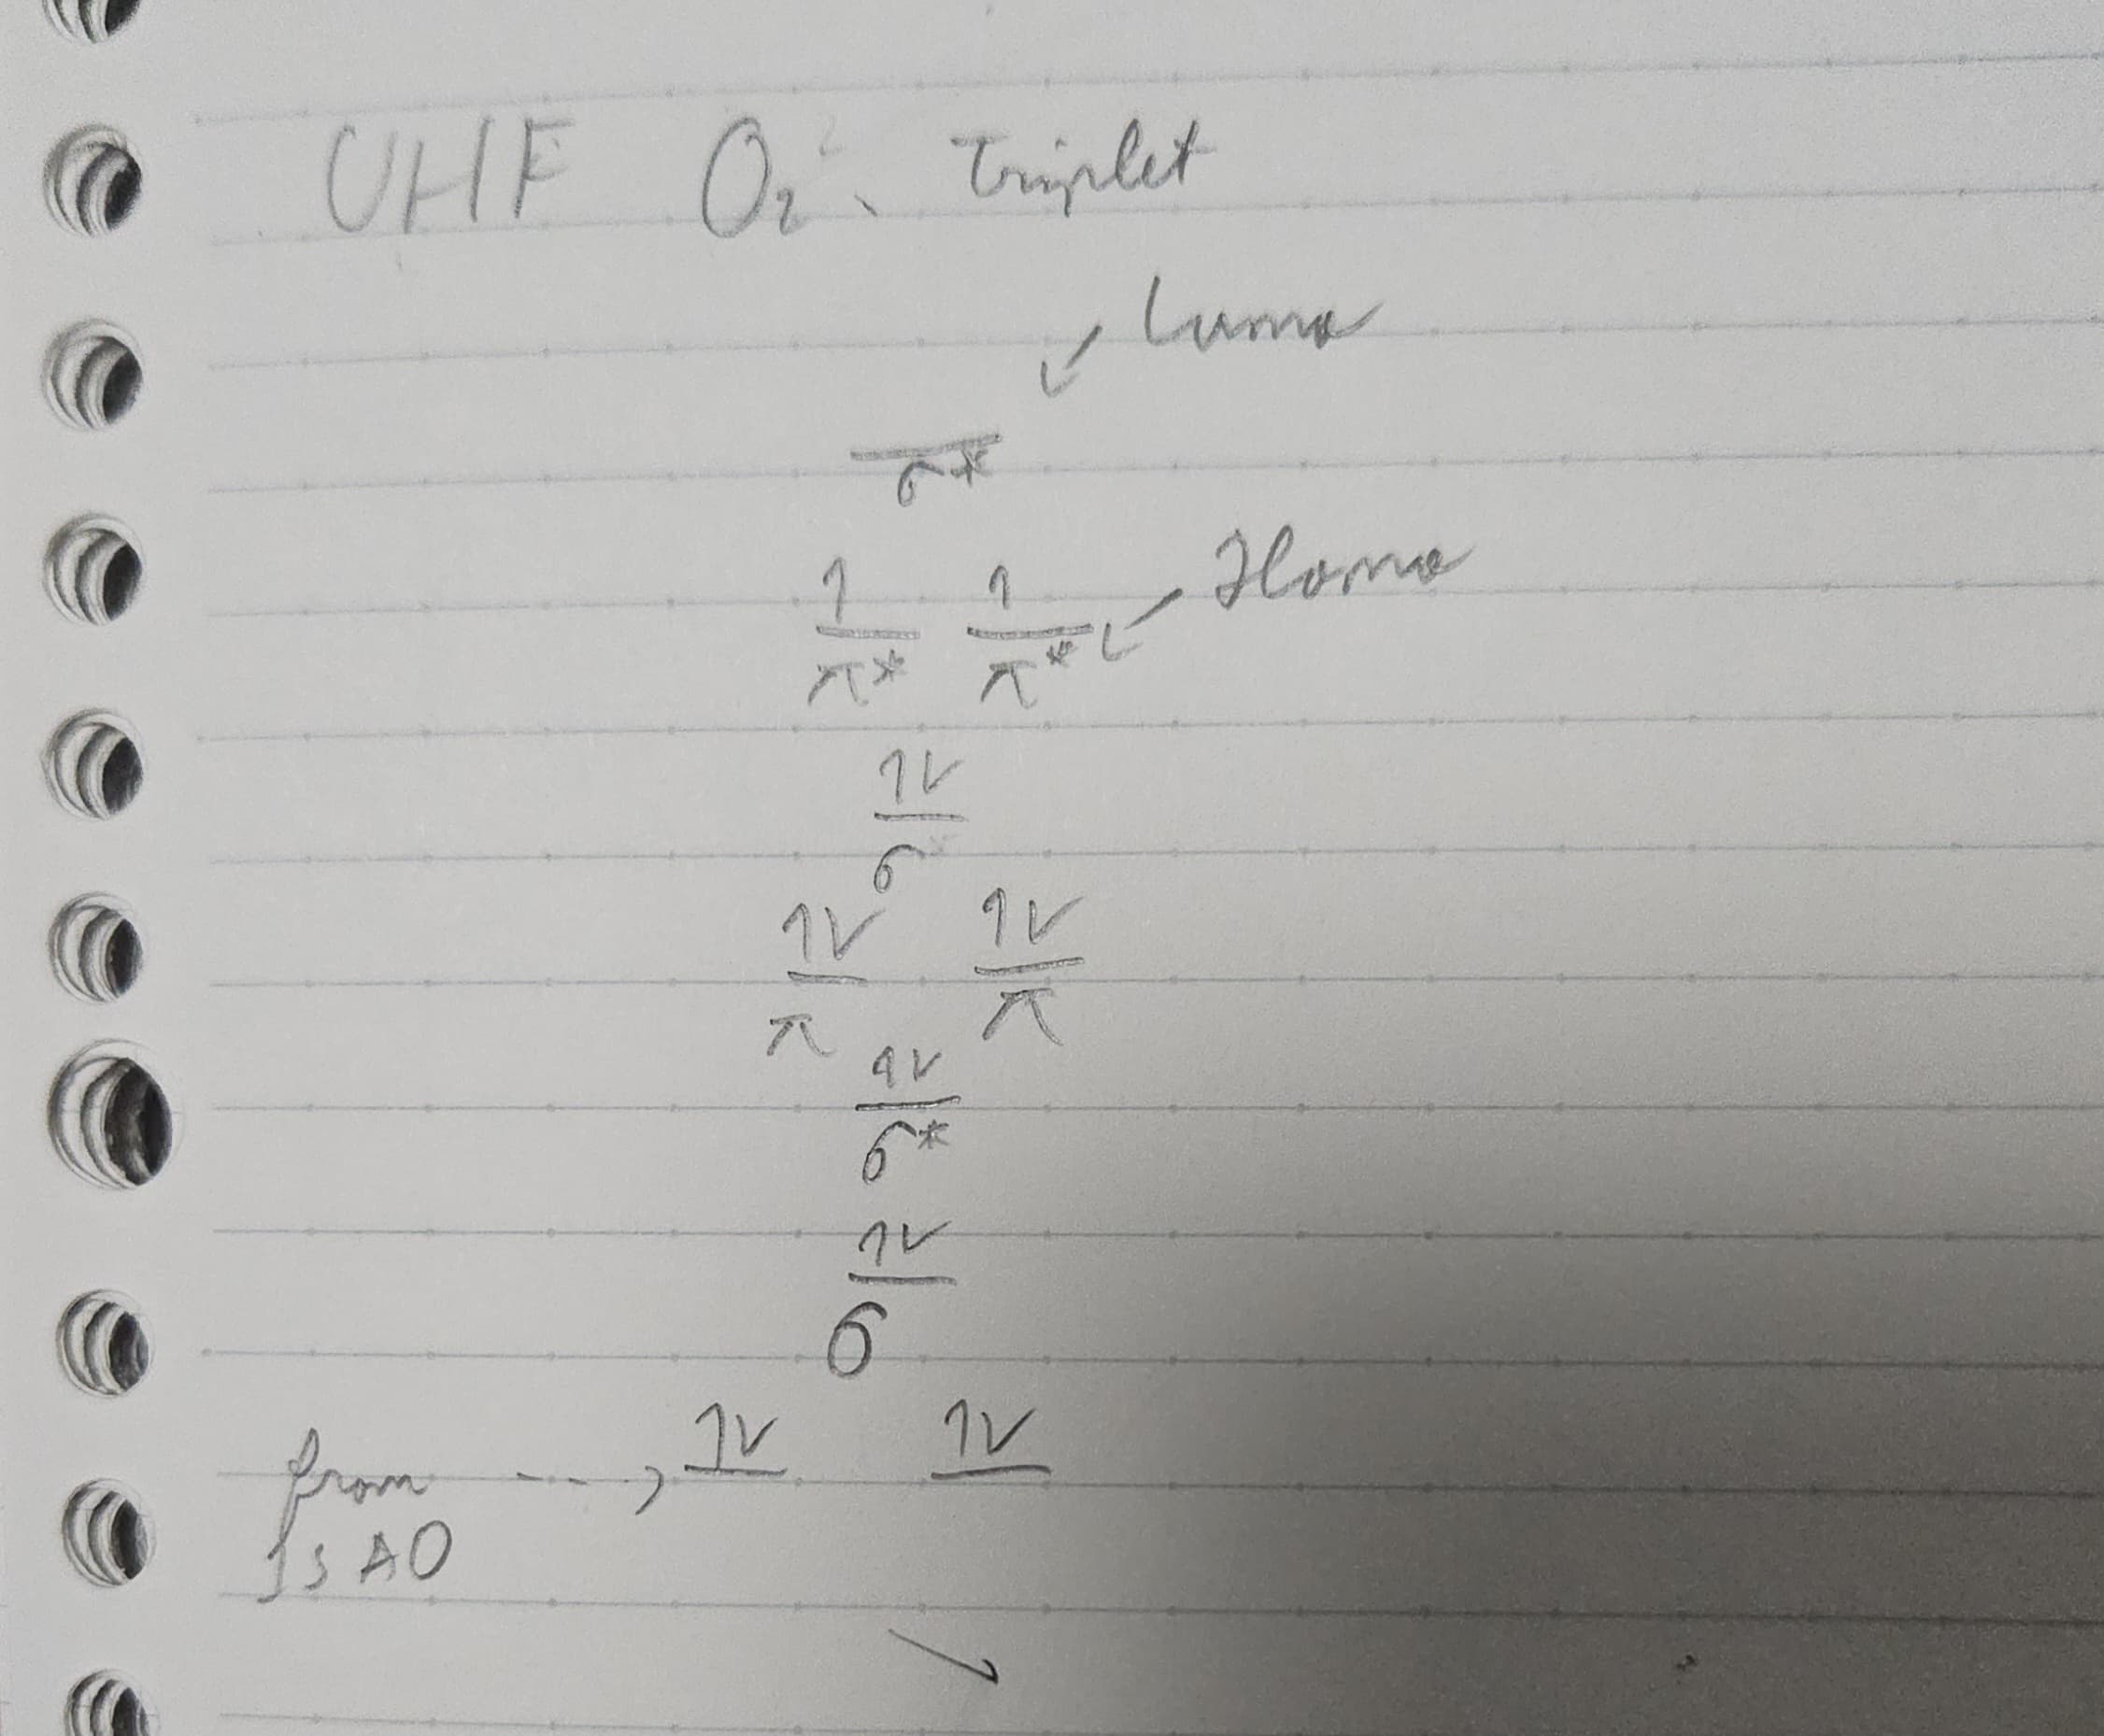 UHF O₂、 Triplet
Lumo
σ*
↑ ↑ Homo
π* π*
↑↓
σ
↑↓ ↑↓
π π
↑↓
σ*
↑↓
σ
from ...., ↑↓ ↑↓
1s AO